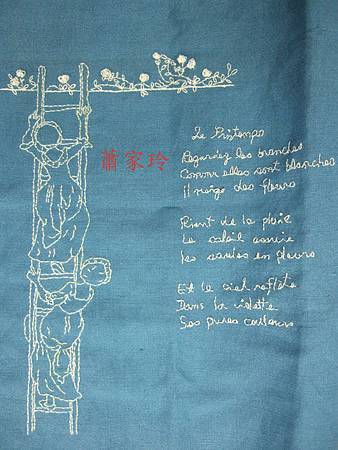 Le Printemps
蕭家玲
Regardez les branches
Comme elles sont blanches
Il neige des fleurs
Riant de la pluie
Le soleil essuie
les saules en pleurs
Et le ciel reflète
Dans la violette
Ses pures couleurs